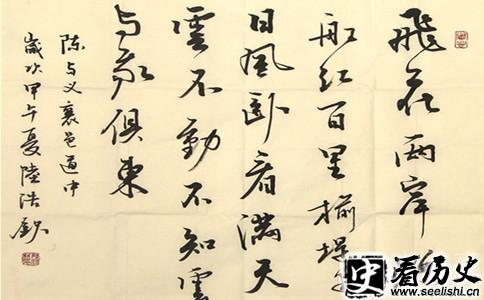 飛花兩岸
船紅百里榆堤
日風卧看滿天
雲不動不知雲
与我俱東
陈与义襄邑道中
歲次甲午夏陸浩
史看历史
www.seelishi.cn